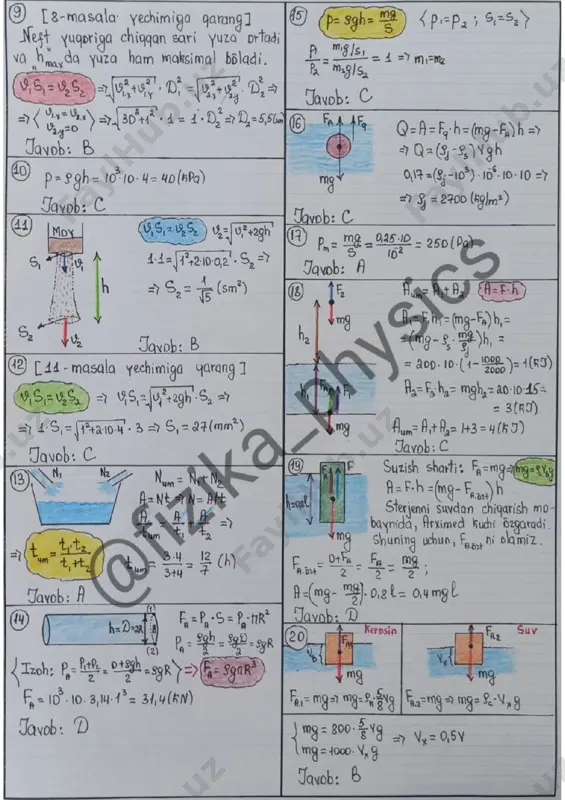 9 [8-masala yechimiga qarang]
Neft yuqoriga chiqqan sari yuza ortadi
va "hmax" da yuza ham maksimal bo'ladi.
v₁S₁ = v₂S₂ ⇒ √(v₁ₓ²+v₁ᵧ²) · D₁² = √(v₂ₓ²+v₂ᵧ²) · D₂² ⇒
⇒ ⟨ v₁.ₓ = v₂.ₓ ; v₂.ᵧ = 0 ⟩ ⇒ √(30²+1²) · 1 = 1 · D₂² ⇒ D₂ = 5,5 (sm)
Javob: B
10 p = ρgh = 10³·10·4 = 40 (kPa)
Javob: C
11 Moy
v₁S₁ = v₂S₂ v₂ = √(v₁²+2gh)
S₁ v₁
1·1 = √(1²+2·10·0,2) · S₂ ⇒
h
⇒ S₂ = 1/√5 (sm²)
S₂ v₂
Javob: B
12 [11-masala yechimiga qarang]
v₁S₁ = v₂S₂ ⇒ v₁S₁ = √(v₁²+2gh) · S₂ ⇒
⇒ 1·S₁ = √(1²+2·10·4) · 3 ⇒ S₁ = 27 (mm²)
Javob: C
13 N₁ N₂
Num = N₁ + N₂
A = Nt ⇒ N = A/t
A/tum = A/t₁ + A/t₂ ⇒
⇒ tum = t₁·t₂/(t₁+t₂) tum = 3·4/(3+4) = 12/7 (h)
Javob: A
14 h = D = 2R (1) (2)
FA = PA · S = PA · πR²
PA = ρgh/2 = ρgD/2 = ρgR
{Izoh: PA = (P₁+P₂)/2 = (0+ρgh)/2 = ρgR} ⇒ FA = ρgπR³
FA = 10³·10·3,14·1³ = 31,4 (kN)
Javob: D
15 p = ρgh = mg/S ⟨P₁ = P₂ ; S₁ = S₂⟩
P₁/P₂ = (m₁g/S₁)/(m₂g/S₂) = 1 ⇒ m₁ = m₂
Javob: C
16 FA Fq
Q = A = Fq·h = (mg−FA)h ⇒
⇒ Q = (ρj − ρs)Vgh
mg
0,17 = (ρj−10³)·10⁻⁶·10·10 ⇒
⇒ ρj = 2700 (kg/m³)
Javob: C
17 Pn = mg/S = 0,25·10/10⁻² = 250 (Pa)
Javob: A
18 F₂ Aum = A₁ + A₂ A = F·h
mg
A₁ = F₁h₁ = (mg−FA)h₁ =
h₂
= (mg − ρs · mg/ρj)h₁ =
= 200·10·(1 − 1000/2000) = 1 (kJ)
h₁
A₂ = F₂·h₂ = mgh₂ = 20·10·15 =
= 3 (kJ)
mg
Aum = A₁ + A₂ = 1+3 = 4 (kJ)
Javob: C
19 F Suzish sharti: FA = mg ⇒ mg = ρVbg
A = F·h = (mg − FA.o'rt)h
h = 0,8l
Sterjenni suvdan chiqarish mo-
baynida, Arximed kuchi o'zgaradi.
mg
Shuning uchun, FA ni o'rt olamiz.
FA.o'rt = (0+FA)/2 = FA/2 = mg/2 ;
A = (mg − mg/2) · 0,8l = 0,4mgl
Javob: D
20 Kerosin Suv
FA.1 FA.2
Vb Vx
mg mg
FA.1 = mg ⇒ mg = ρk 5/8 Vg FA.2 = mg ⇒ mg = ρs·Vₓg
{ mg = 800 · 5/8 Vg
mg = 1000·Vₓg ⇒ Vₓ = 0,5V
Javob: B
@fizika_physics
FaylHub.uz